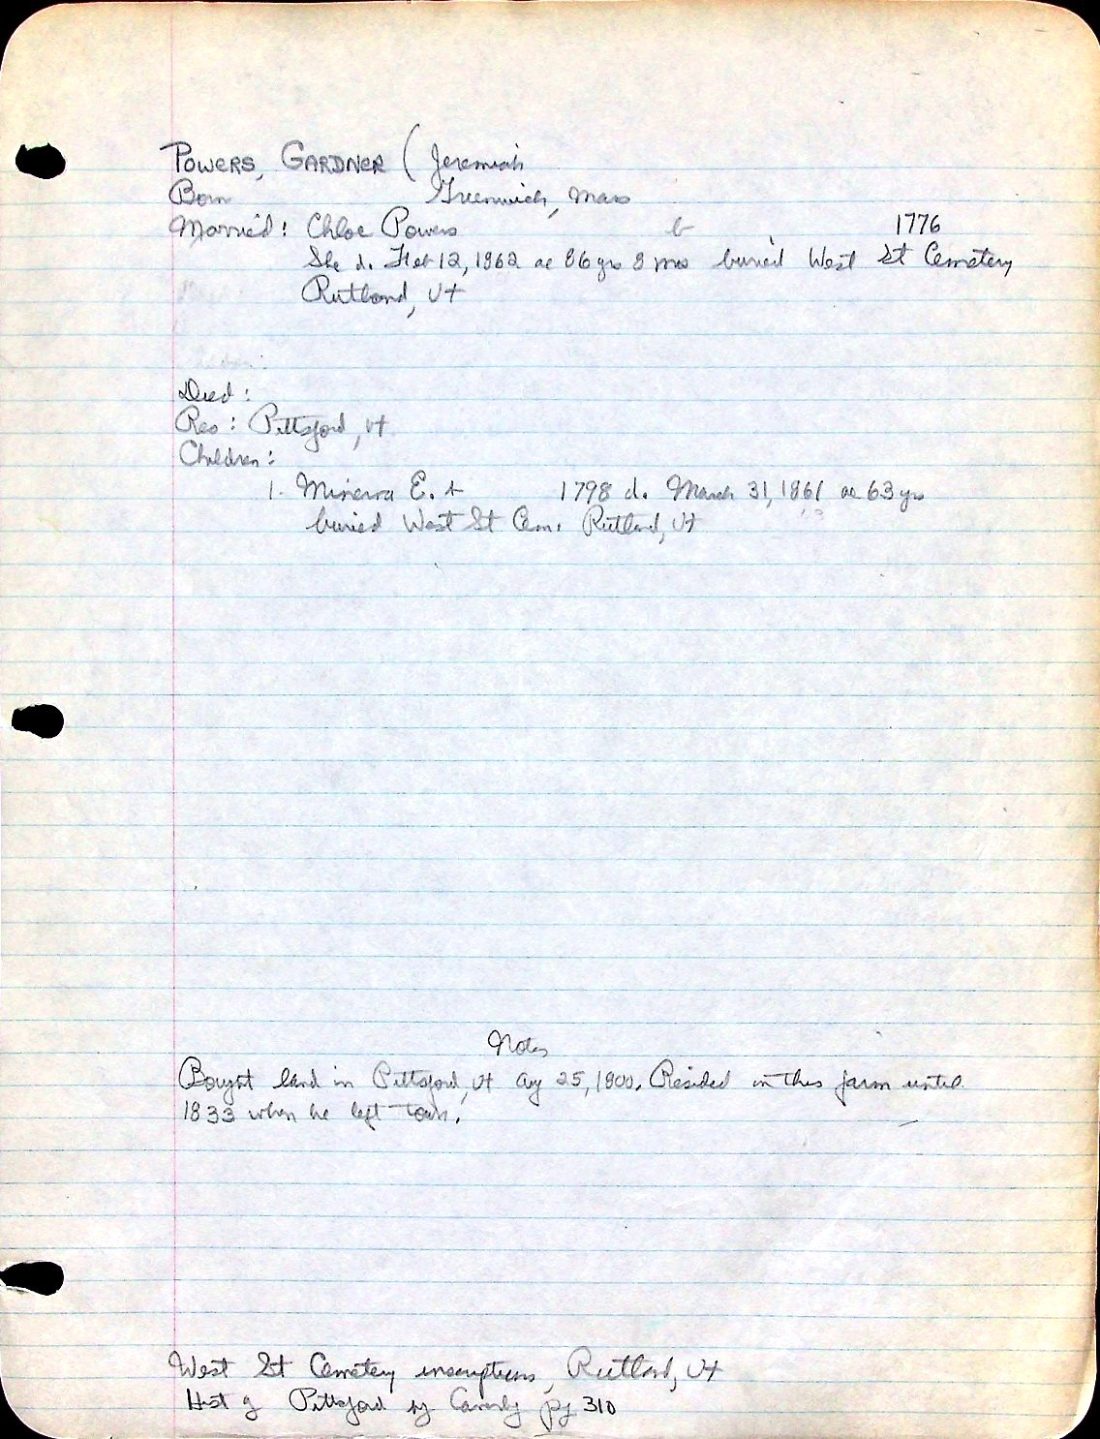 POWERS, GARDNER ( Jeremiah
Born Greenwich, Mass
Married: Chloe Powers b 1776
She d. Feb 12, 1862 ae 86 yrs 8 mos buried West St Cemetery
Rutland, Vt
Died:
Res: Pittsford, Vt
Children:
1. Minerva E. b 1798 d. March 31, 1861 ae 63 yrs
buried West St Cem. Rutland, Vt
Notes
Bought land in Pittsford, Vt Aug 25, 1800. Resided on this farm until
1833 when he left town.
West St Cemetery inscriptions, Rutland, Vt
Hist of Pittsford by Caverly pg 310